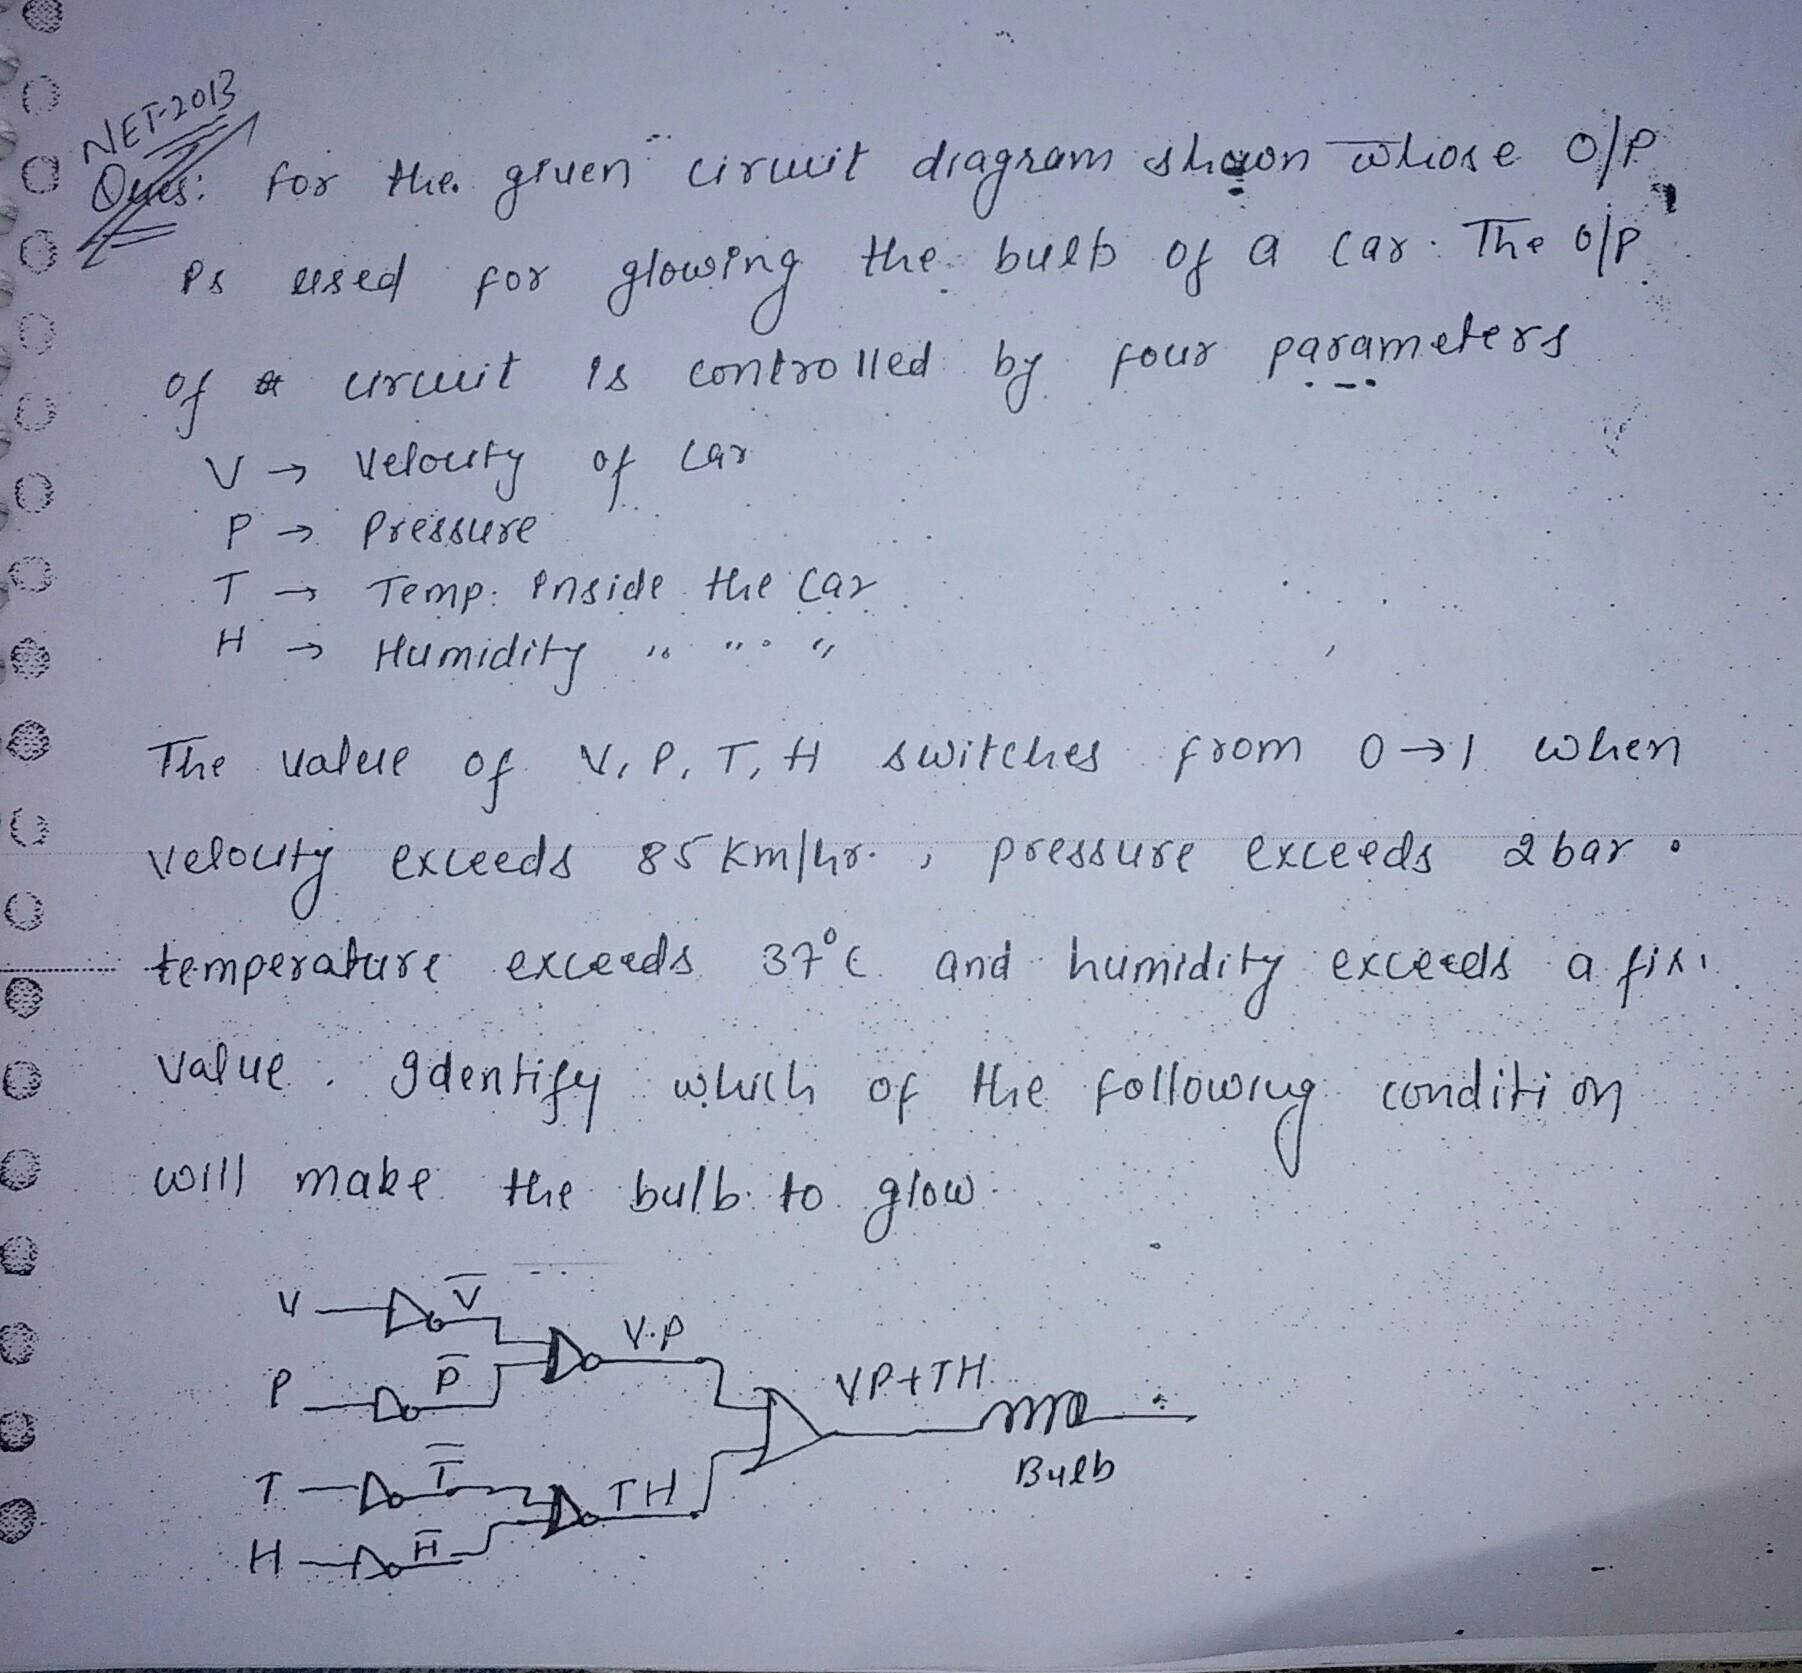 NET-2013
Ques: for the given circuit diagram shown whose o/p
is used for glowing the bulb of a car. The o/p
of circuit is controlled by four parameters
V → Velocity of car
P → Pressure
T → Temp. inside the car
H → Humidity " " "
The value of V, P, T, H switches from 0→1 when
velocity exceeds 85 km/hr. , pressure exceeds 2 bar
temperature exceeds 37°C and humidity exceeds a
value. Identify which of the following condition
will make the bulb to glow.
V V̅
P P̅
V.P
VP+TH
Bulb
T T̅
H H̅
TH